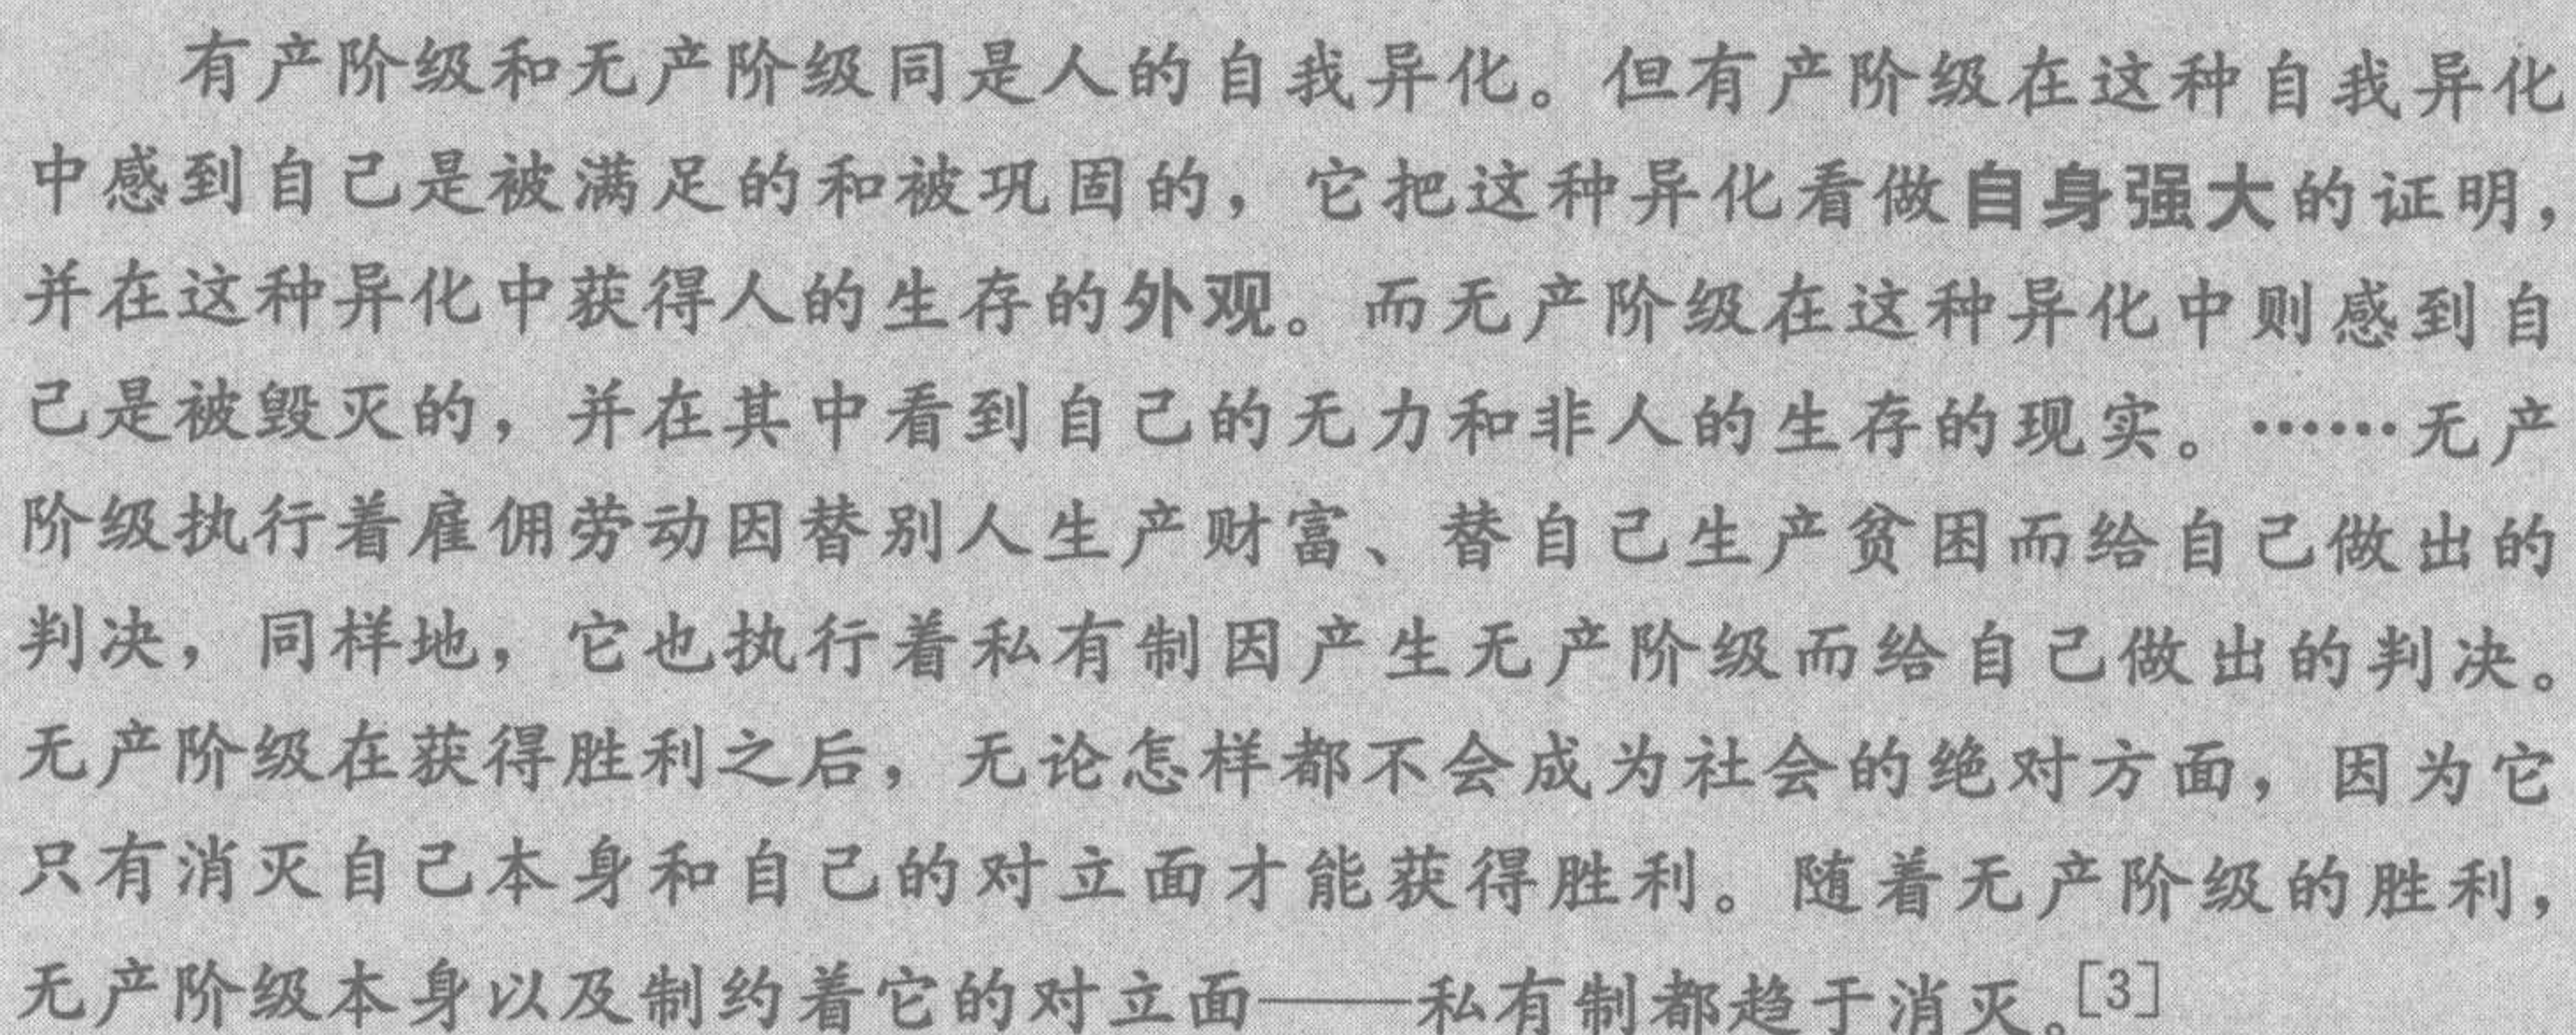 有产阶级和无产阶级同是人的自我异化。但有产阶级在这种自我异化
中感到自己是被满足的和被巩固的，它把这种异化看做自身强大的证明，
并在这种异化中获得人的生存的外观。而无产阶级在这种异化中则感到自
己是被毁灭的，并在其中看到自己的无力和非人的生存的现实。……无产
阶级执行着雇佣劳动因替别人生产财富、替自己生产贫困而给自己做出的
判决，同样地，它也执行着私有制因产生无产阶级而给自己做出的判决。
无产阶级在获得胜利之后，无论怎样都不会成为社会的绝对方面，因为它
只有消灭自己本身和自己的对立面才能获得胜利。随着无产阶级的胜利，
无产阶级本身以及制约着它的对立面——私有制都趋于消灭。[3]